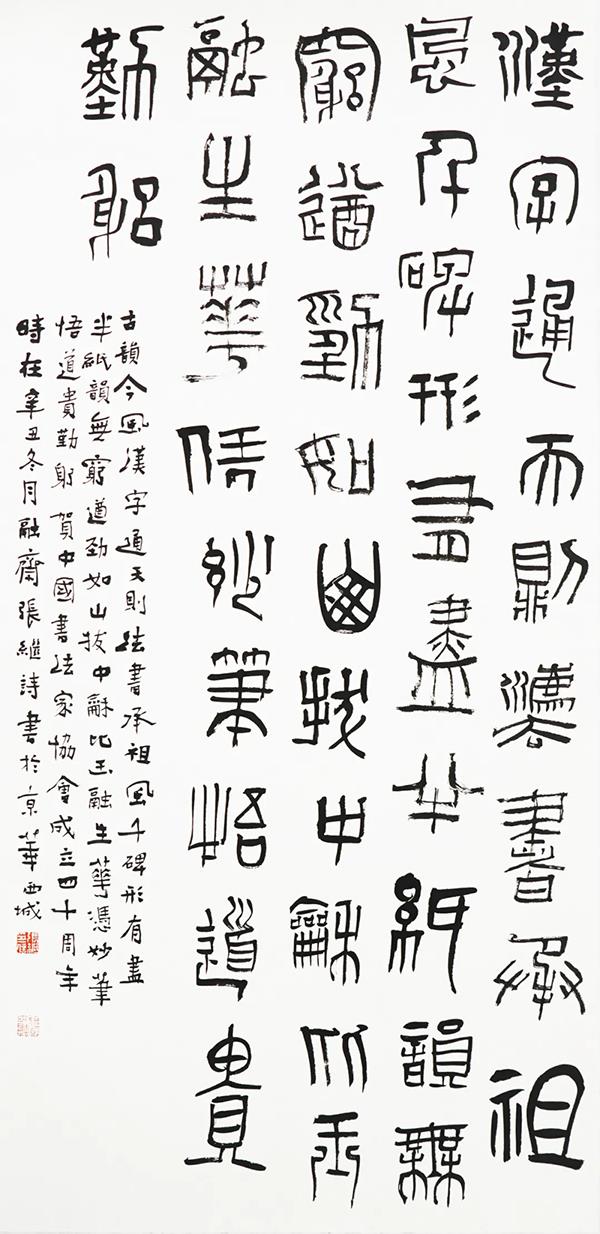 漢字通天則灋書承祖
風千碑形有盡半紙韻無
窮遒勁如山拔中龢比玉
融生華凭妙筆悟道貴
勤躬
古韻今風漢字通天則法書承祖風千碑形有盡
半紙韻無窮遒勁如山拔中龢比玉融生華憑妙筆
悟道貴勤躬賀中國書法家協會成立四十周年
時在辛丑冬月融齋張繼詩書於京華西城